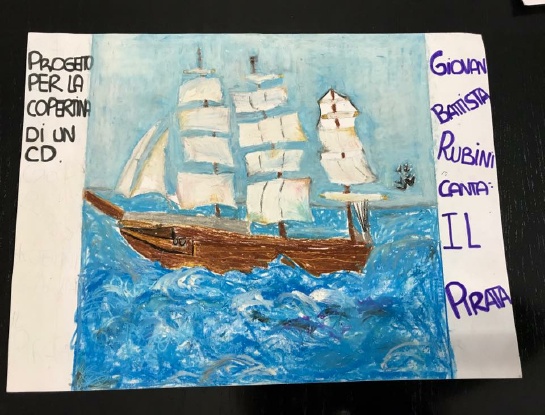 PROGETTO
PER LA
COPERTINA
DI UN
CD.
GIOVAN
BATTISTA
RUBINI
CANTA:
IL
PIRATA